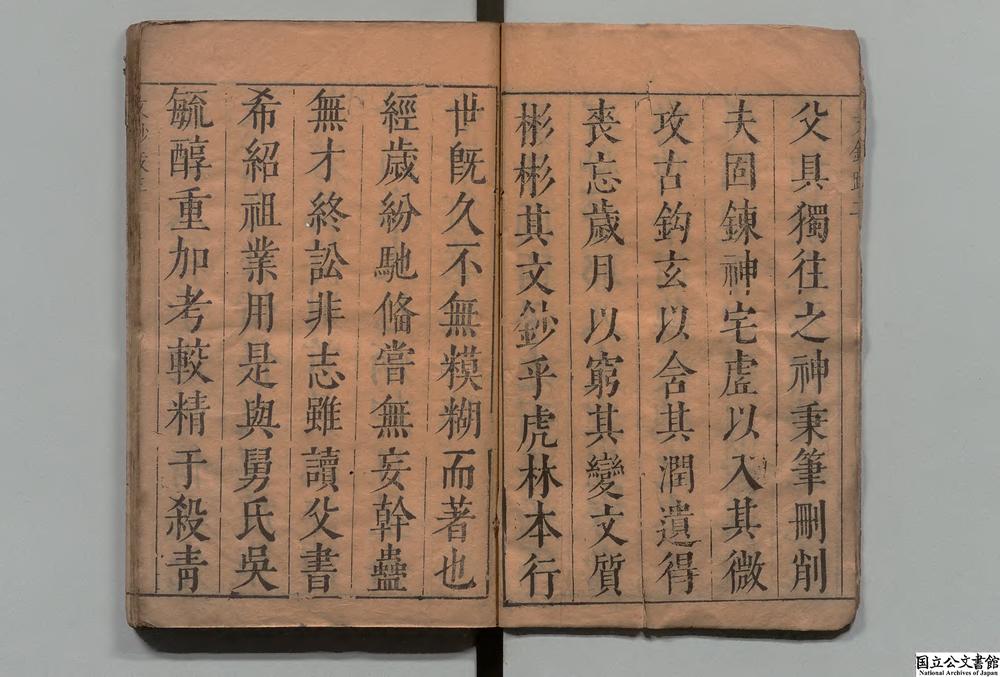 父具獨往之神秉筆刪削
夫固鍊神宅虛以入其微
攻古鈎玄以含其潤遺得
喪忘歲月以窮其變文質
彬彬其文鈔乎虎林本行
世既久不無糢糊而著也
經歲紛馳脩嘗無妄幹蠱
無才終訟非志雖讀父書
希紹祖業用是與舅氏吳
毓醇重加考較精于殺青
国立公文書館
National Archives of Japan